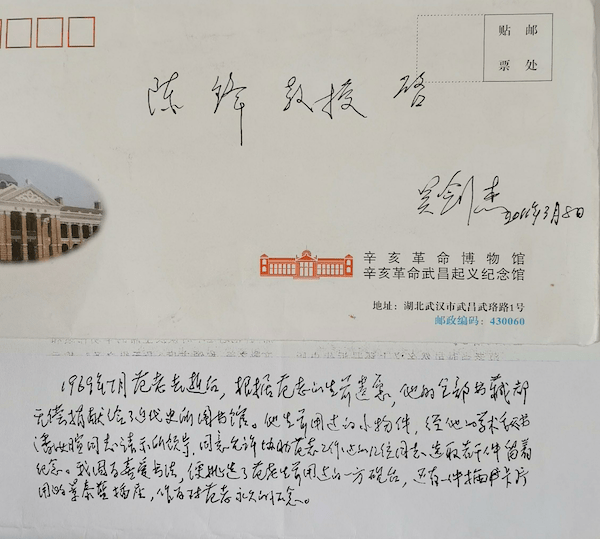 贴 邮
票 处
陈 锋 教授 启
吴剑杰 2011年3月8日
辛亥革命博物馆
辛亥革命武昌起义纪念馆
地址：湖北武汉市武昌武珞路1号
邮政编码：430060
1969年7月范老去逝后，根据范老的生前遗愿，他的全部书藏都
无偿捐献给了近代史所图书馆。他生前用过的小物件，经他的学术秘书
同志请示所领导，同意允许协助范老工作过的几位同志选取若干件留着
纪念。我因喜爱书法，便挑选了范老生前用过的一方砚台，还有一件插卡片
用的景泰蓝插座，作为对范老永久的纪念。